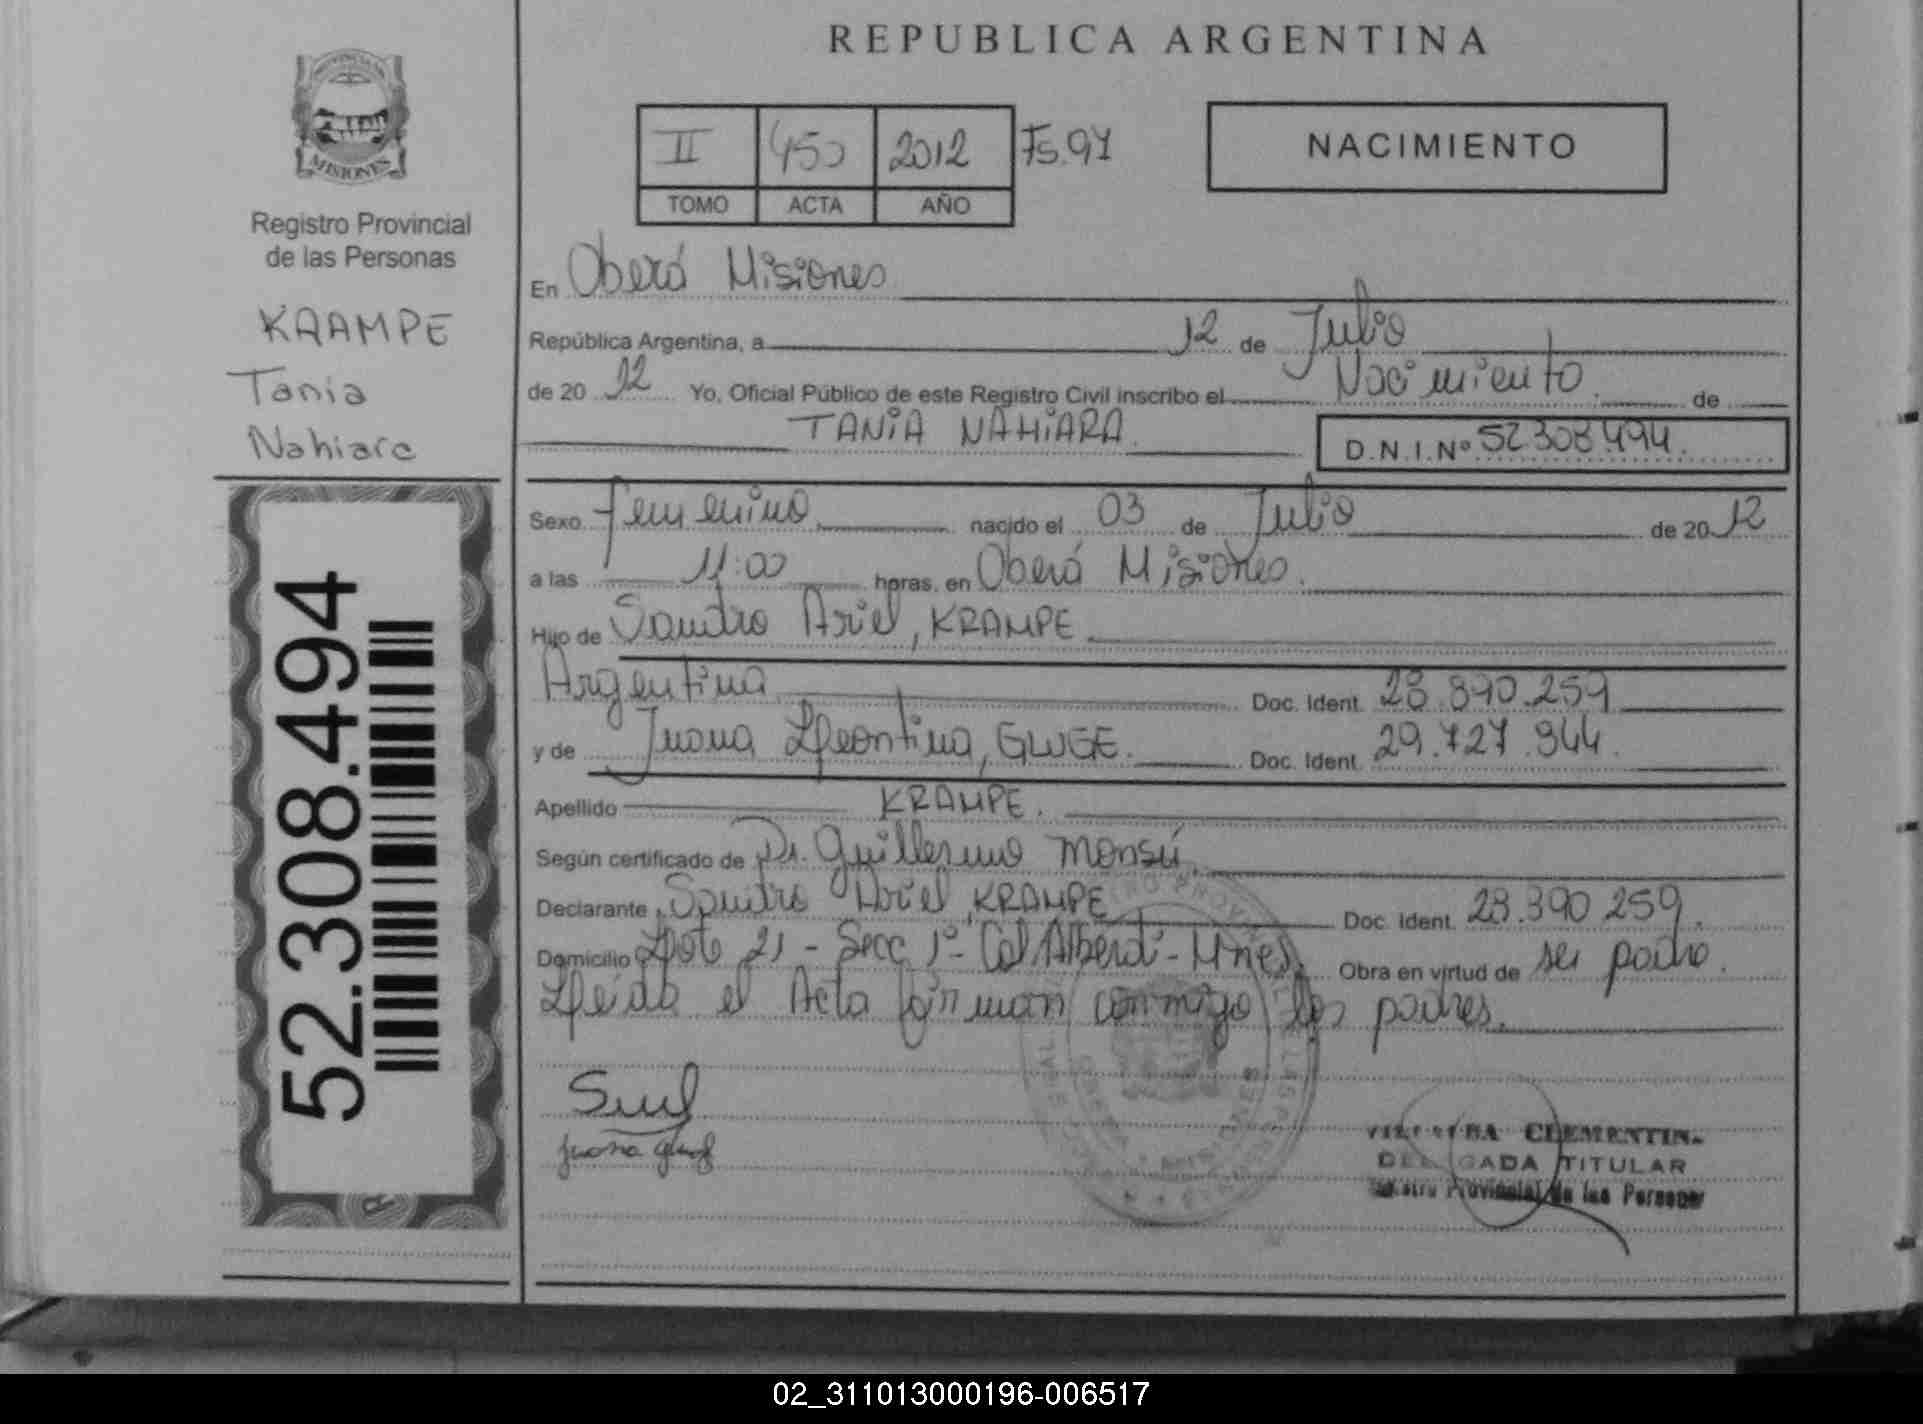 REPUBLICA ARGENTINA
PROVINCIA DE MISIONES
Registro Provincial
de las Personas
KRAMPE
Tania
Nahiara
52.308.494
II 450 2012 Fs.97
TOMO ACTA AÑO
NACIMIENTO
En Oberá Misiones
República Argentina, a 12 de Julio
de 2012 Yo, Oficial Público de este Registro Civil inscribo el Nacimiento de
TANIA NAHIARA. D.N.I.Nº 52.308.494.
Sexo Femenino nacido el 03 de Julio de 2012
a las 11:00 horas, en Oberá Misiones.
Hijo de Sandro Ariel, KRAMPE
Argentina Doc. Ident. 28.890.259
y de Juana Leontina, GLUGE. Doc. Ident. 29.727.944.
Apellido KRAMPE.
Según certificado de Dr. Guillermo Monsú
Declarante Sandro Ariel, KRAMPE Doc. Ident. 28.890.259.
Domicilio Lote 21 - Secc 1º - Col Alberdi - Mnes. Obra en virtud de ser padre.
Leída el Acta firman conmigo los padres.
CLEMENTIN
DELEGADA TITULAR
Registro Provincial de las Personas
02_311013000196-006517